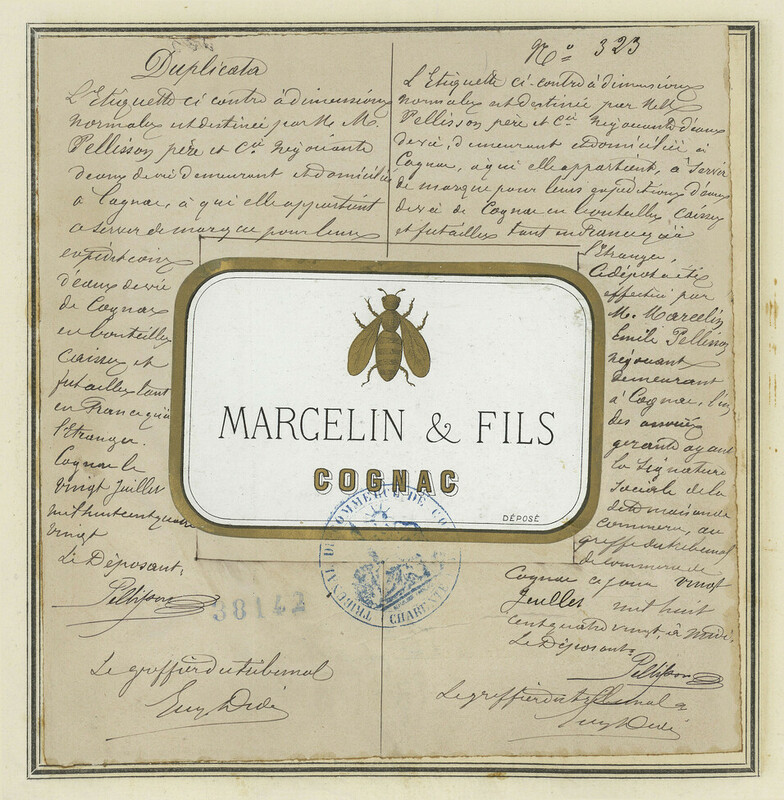 Duplicata
L'Etiquette ci contre à dimensions
normales est destinée par M. M.
Pellisson père et Cie Négociants
d'eaux de vie demeurant et domiciliés
à Cognac, à qui elle appartient
à servir de marque pour leurs
expéditions
d'eaux de vie
de Cognac
en bouteilles
caisses et
futailles tant
en France qu'à
l'Etranger.
Cognac le
vingt Juillet
mil huit cent quatre
vingt
Le Déposant,
Pellisson
38142
Le greffier du tribunal
No 323
L'Etiquette ci-contre à dimensions
normales est destinée par MM.
Pellisson père et Cie Négociants d'eaux
de vie, demeurant et domiciliés à
Cognac, à qui elle appartient, à servir
de marque pour leurs expéditions d'eaux
de vie de Cognac en bouteilles, caisses
et futailles tant en France qu'à
l'Etranger.
Ce dépôt a été
effectué par
M. Marcelin
Emile Pellisson
négociant
demeurant
à Cognac, l'un
des associés
gérants ayant
la Signature
Sociale de la
dite maison de
commerce, au
greffe du tribunal
de commerce de
Cognac ce jour vingt
Juillet mil huit
cent quatre vingt, à midi.
Le Déposant,
Pellisson
Le greffier du tribunal
MARCELIN & FILS
COGNAC
DÉPOSÉ
TRIBUNAL DE COMMERCE DE CO
CHARENTE